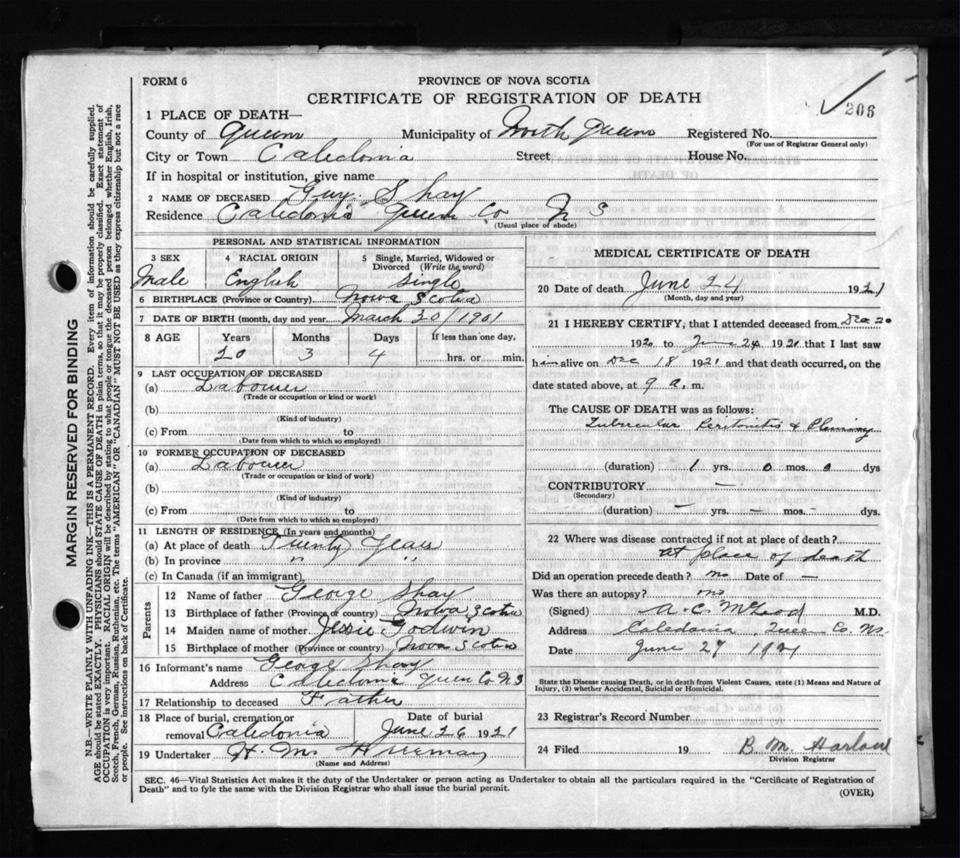 FORM 6
PROVINCE OF NOVA SCOTIA
CERTIFICATE OF REGISTRATION OF DEATH
206
1 PLACE OF DEATH—
County of Queens Municipality of North Queens Registered No.
(For use of Registrar General only)
City or Town Caledonia Street House No.
If in hospital or institution, give name
2 NAME OF DECEASED Guy. Shay
Residence Caledonia Queens Co N S
(Usual place of abode)
PERSONAL AND STATISTICAL INFORMATION
3 SEX 4 RACIAL ORIGIN 5 Single, Married, Widowed or Divorced (Write the word)
Male English single
6 BIRTHPLACE (Province or Country) Nova Scotia
7 DATE OF BIRTH (month, day and year March 20/1901
8 AGE Years Months Days If less than one day,
20 3 4 hrs. or min.
9 LAST OCCUPATION OF DECEASED
(a) Labourer
(Trade or occupation or kind or work)
(b)
(Kind of industry)
(c) From to
(Date from which to which so employed)
10 FORMER OCCUPATION OF DECEASED
(a) Labourer
(Trade or occupation or kind of work)
(b)
(Kind of industry)
(c) From to
(Date from which to which so employed)
11 LENGTH OF RESIDENCE (In years and months)
(a) At place of death Twenty Years
(b) In province " "
(c) In Canada (if an immigrant)
Parents
12 Name of father George Shay
13 Birthplace of father (Province or country) Nova Scotia
14 Maiden name of mother Jessie Godwin
15 Birthplace of mother (Province or country) Nova Scotia
16 Informant's name George Shay
Address Caledonia Queen Co N S
17 Relationship to deceased Father
18 Place of burial, cremation or removal Caledonia Date of burial June 26 1921
19 Undertaker H. Mc
(Name and Address)
MEDICAL CERTIFICATE OF DEATH
20 Date of death June 24 1921
(Month, day and year)
21 I HEREBY CERTIFY, that I attended deceased from Dec 20
1920 to June 24 1921 that I last saw
him alive on Dec 18 1921 and that death occurred, on the
date stated above, at 9 a. m.
The CAUSE OF DEATH was as follows:
Tubercular Peritonitis & Pleurisy
(duration) 1 yrs. 0 mos. 0 dys
CONTRIBUTORY —
(Secondary)
(duration) — yrs. — mos. — dys.
22 Where was disease contracted if not at place of death?
at place of death
Did an operation precede death? no Date of —
Was there an autopsy? no
(Signed) A. C. McLeod M.D.
Address Caledonia, Queens Co. N.S.
Date June 27 1921
State the Disease causing Death, or in death from Violent Causes, state (1) Means and Nature of
Injury, (2) whether Accidental, Suicidal or Homicidal.
23 Registrar's Record Number
24 Filed 19 B. M. Harlow
Division Registrar
SEC. 46—Vital Statistics Act makes it the duty of the Undertaker or person acting as Undertaker to obtain all the particulars required in the "Certificate of Registration of
Death" and to fyle the same with the Division Registrar who shall issue the burial permit.
(OVER)
MARGIN RESERVED FOR BINDING
N.B.—WRITE PLAINLY WITH UNFADING INK—THIS IS A PERMANENT RECORD. Every item of information should be carefully supplied.
AGE should be stated EXACTLY. PHYSICIANS should STATE CAUSE OF DEATH in plain terms, so that it may be properly classified. Exact statement of
OCCUPATION is very important. RACIAL ORIGIN will be described by stating to what people or tongue the deceased person belonged whether English, Irish,
Scotch, French, German, Russian, Ruthenian, etc. The terms "AMERICAN" OR "CANADIAN" MUST NOT BE USED as they express citizenship but not a race
or people. See instructions on back of Certificate.